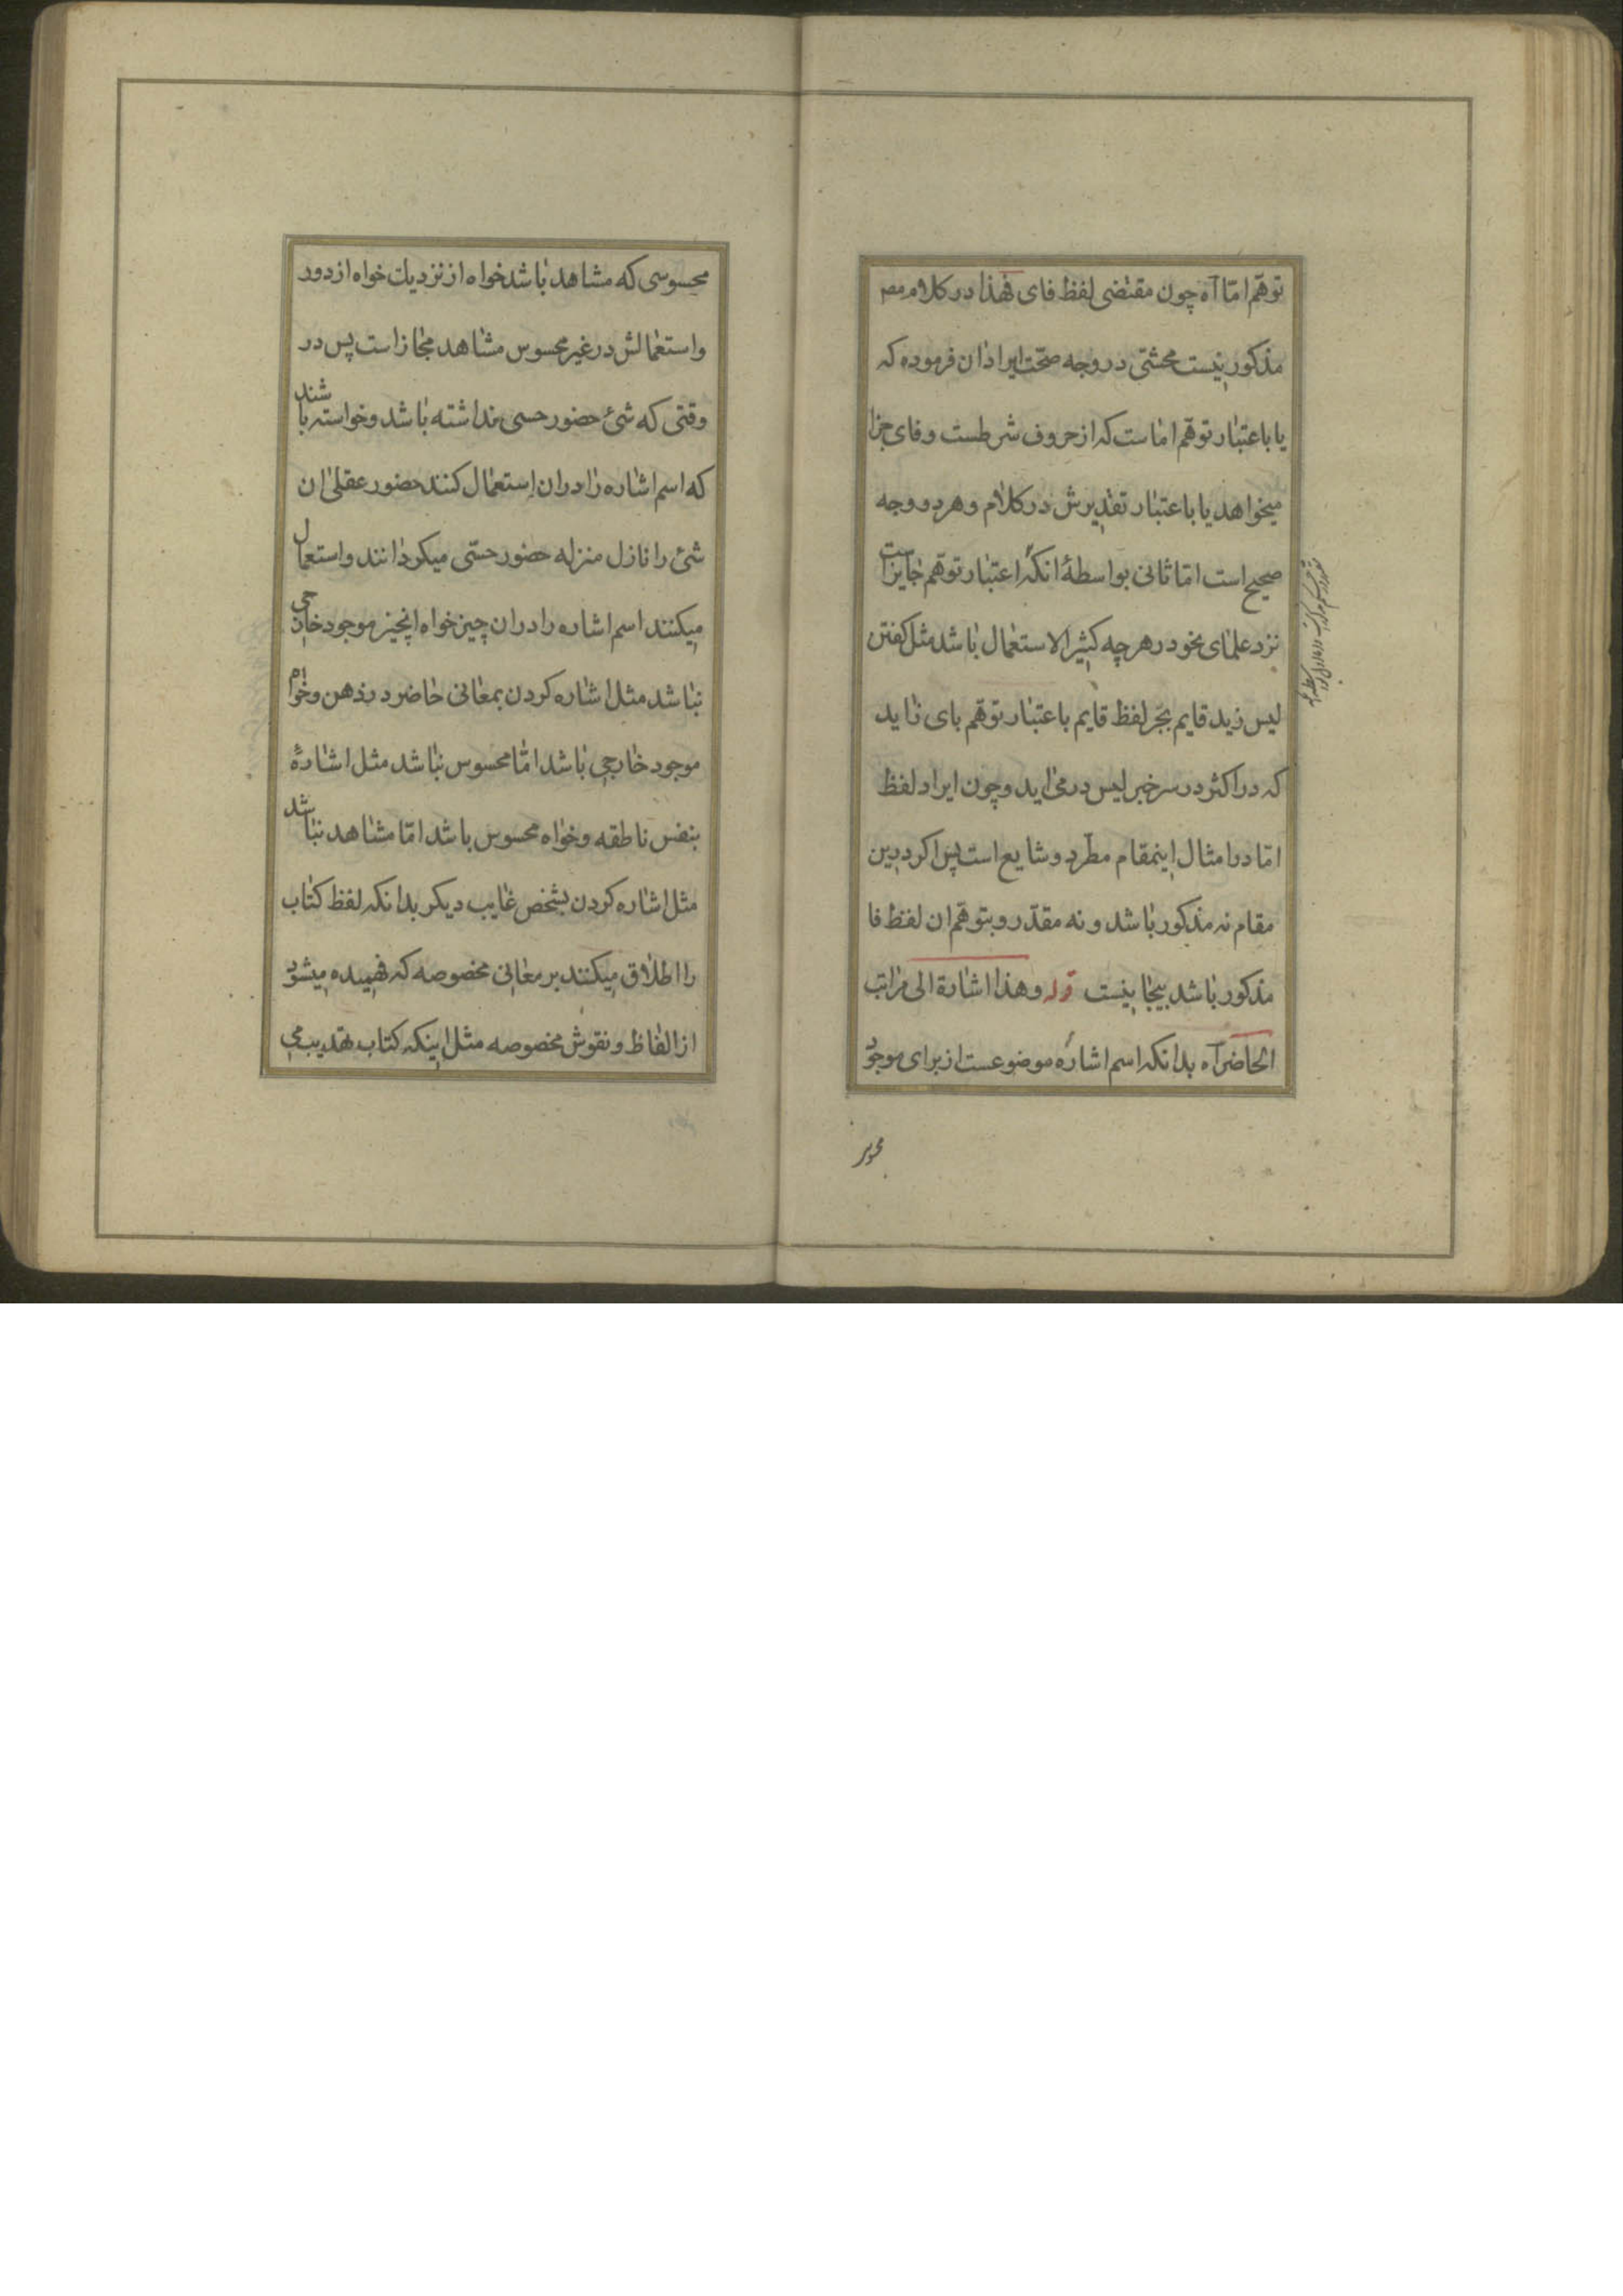 توهّم امّا آه چون مقتضی لفظ فای فهذا در کلام مصر
مذکور نیست محشّی در وجه صحّت ایراد ان فرموده که
یا باعتبار توهّم اماست که از حروف شرطست و فای جزا
میخواهد یا باعتبار تقدیرش در کلام و هر دو وجه
صحیح است امّا ثانی بواسطهٔ انکه اعتبار توهّم جایز است
نزد علمای نحو در هر چه کثیر الاستعمال باشد مثل کفتن
لیس زید قایم بجرّ لفظ قایم باعتبار توهّم بای زاید
که در اکثر در سر خبر لیس در می اید و چون ایراد لفظ
امّا در امثال اینمقام مطّرد و شایع است پس اکر درین
مقام نه مذکور باشد و نه مقدّر و بتوهّم ان لفظ فا
مذکور باشد بیجا نیست قوله و هذا اشارة الی مراتب
الحاضر آه بدانکه اسم اشاره موضوعست از برای موجود
محسوسی که مشاهد باشد خواه از نزدیک خواه از دور
و استعمالش در غیر محسوس مشاهد مجاز است پس در
وقتی که شئ حضور حسی نداشته باشد و خواسته باشند
که اسم اشاره را در ان استعمال کنند حضور عقلی ان
شئ را نازل منزله حضور حسّی میکردانند و استعمال
میکنند اسم اشاره را در ان چیز خواه انچیز موجود خارجی
نباشد مثل اشاره کردن بمعانی حاضر در ذهن و خواه
موجود خارجی باشد امّا محسوس نباشد مثل اشارهٔ
بنفس ناطقه و خواه محسوس باشد امّا مشاهد نباشد
مثل اشاره کردن بشخص غایب دیکر بدانکه لفظ کتاب
را اطلاق میکنند بر معانی مخصوصه که فهمیده میشود
از الفاظ و نقوش مخصوصه مثل اینکه کتاب تهذیب می